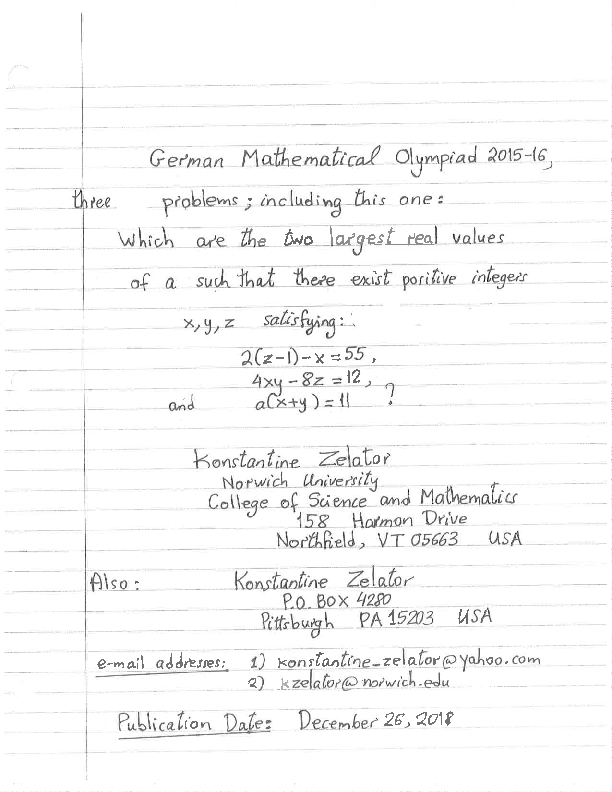 German Mathematical Olympiad 2015-16,
three problems; including this one:
Which are the two largest real values
of a such that there exist positive integers
x, y, z satisfying:
2(z-1)-x=55,
4xy-8z=12,
and a(x+y)=11 ?
Konstantine Zelator
Norwich University
College of Science and Mathematics
158 Harmon Drive
Northfield, VT 05663 USA
Also: Konstantine Zelator
P.O. BOX 4280
Pittsburgh PA 15203 USA
e-mail addresses: 1) konstantine_zelator@yahoo.com
2) kzelator@norwich.edu
Publication Date: December 26, 2018